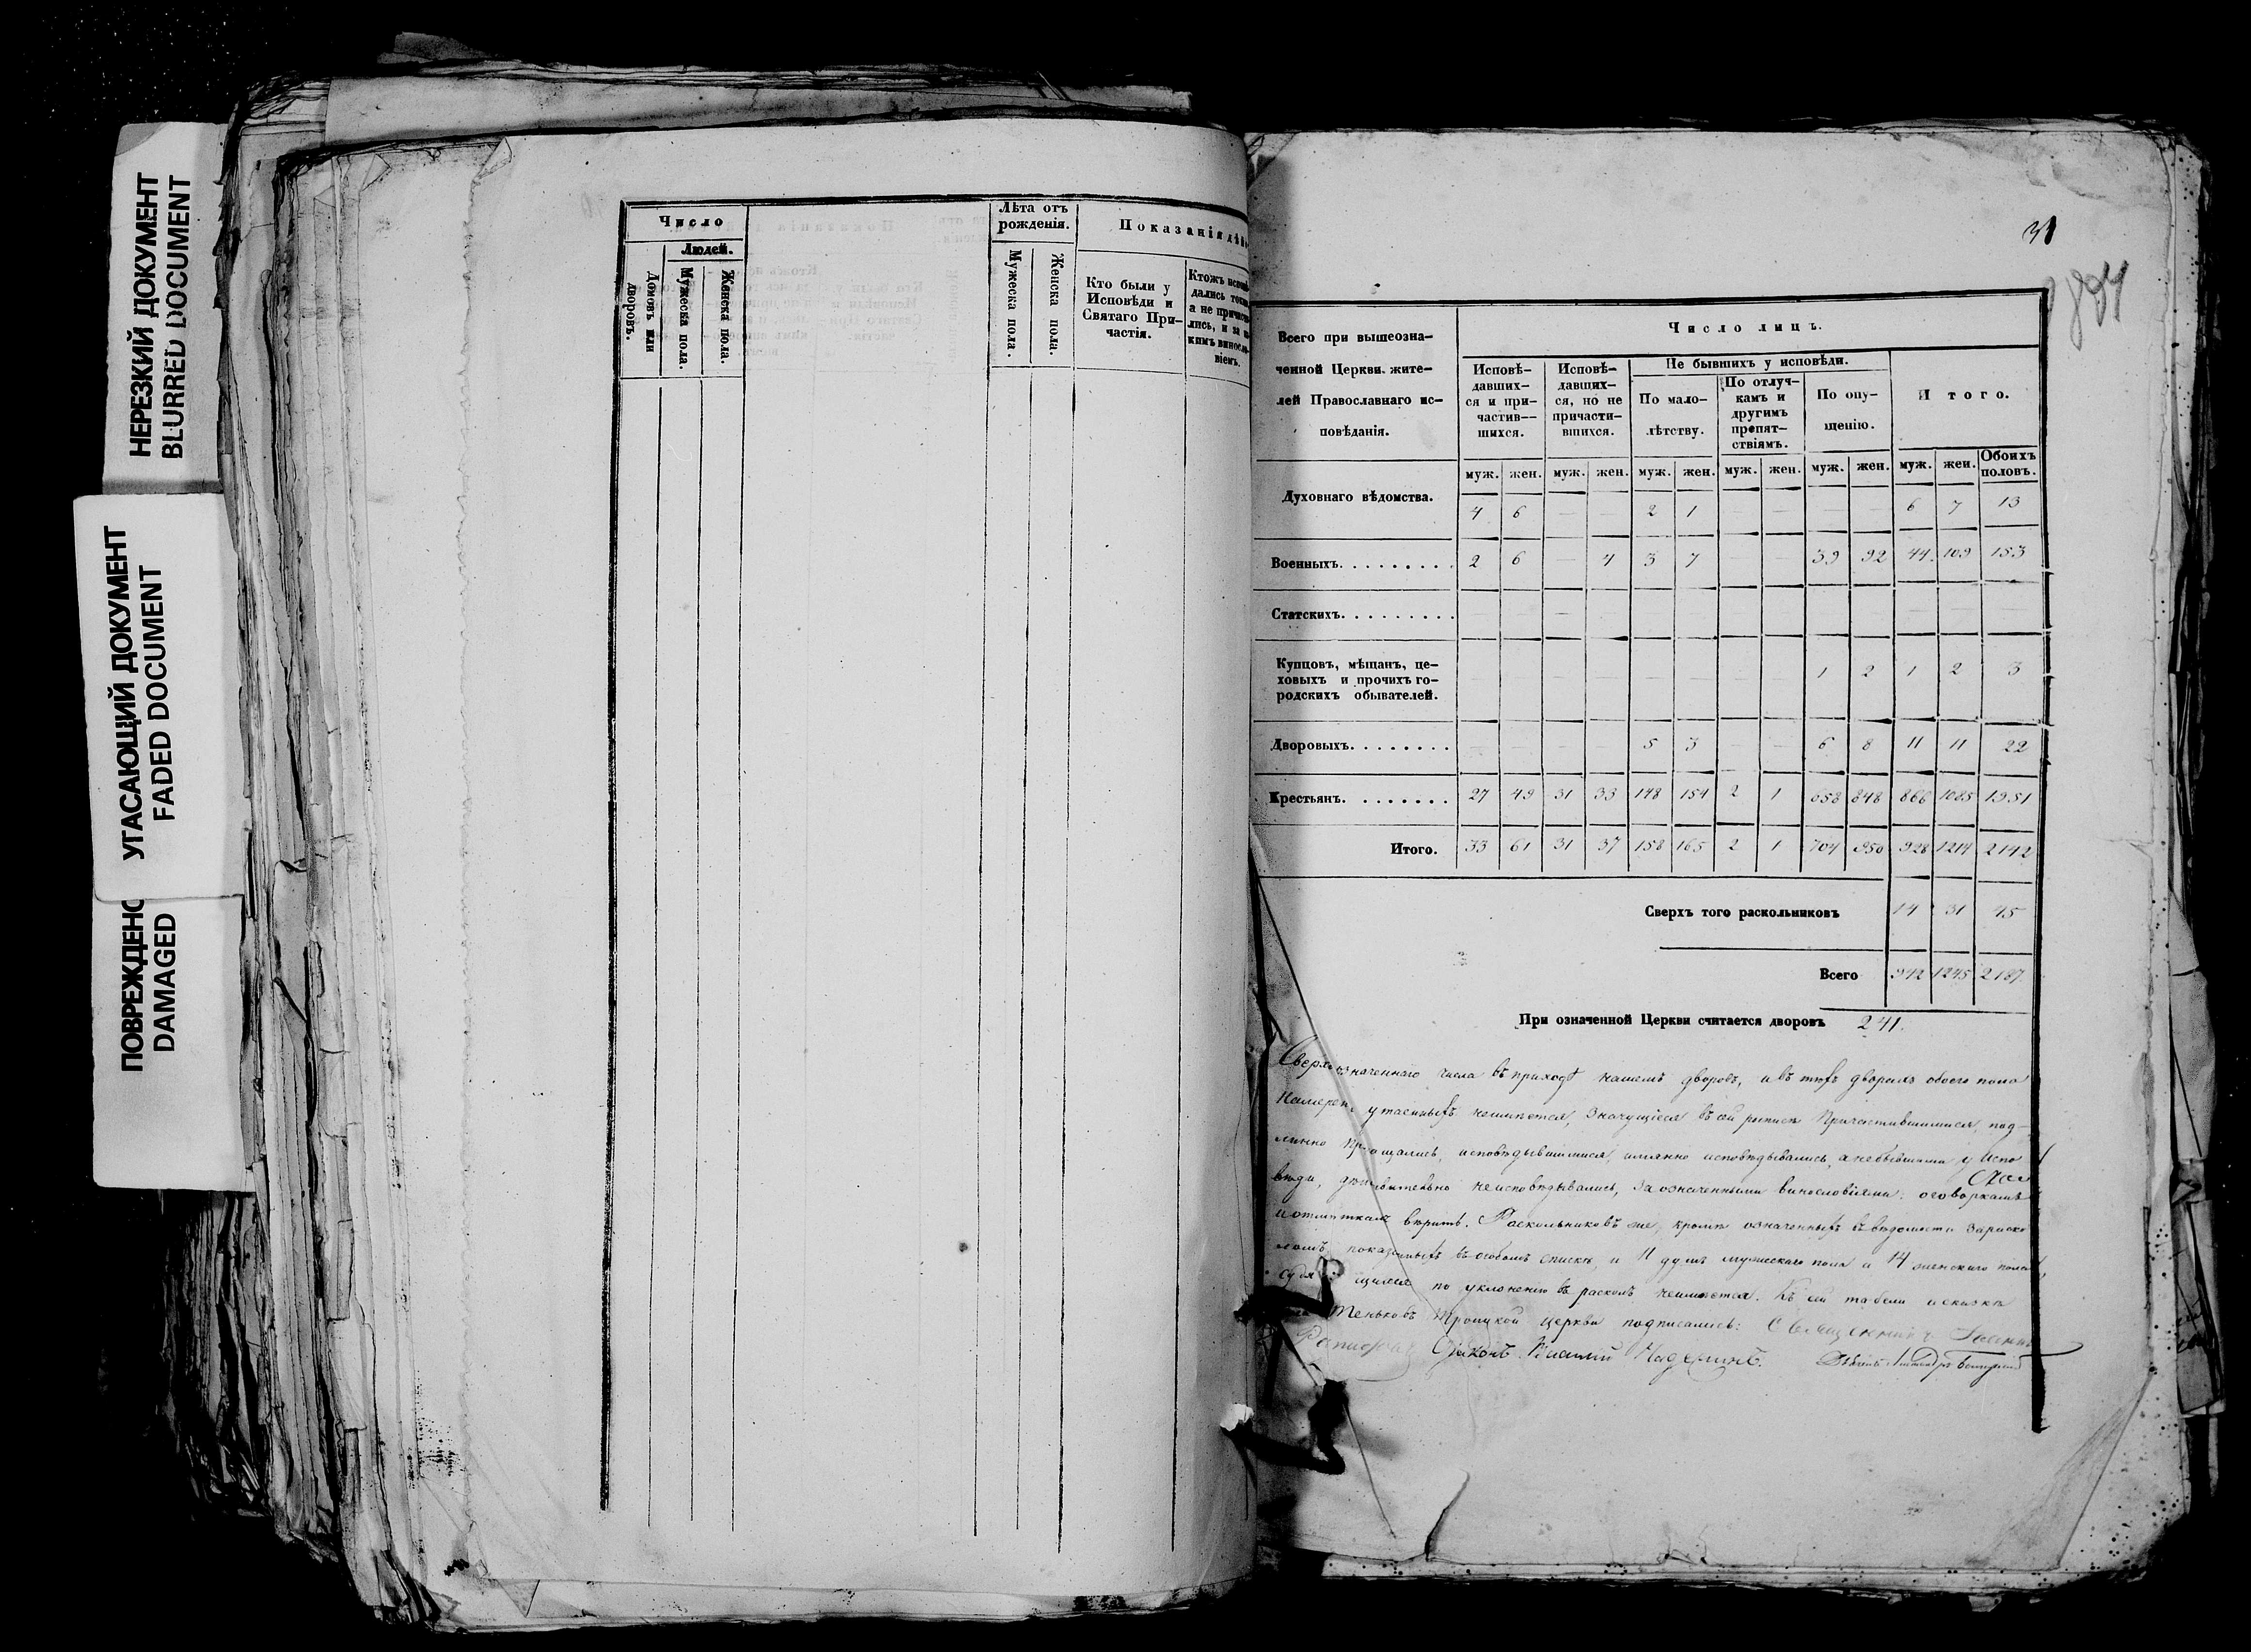 НЕРЕЗКИЙ ДОКУМЕНТ
BLURRED DOCUMENT
УГАСАЮЩИЙ ДОКУМЕНТ
FADED DOCUMENT
ПОВРЕЖДЕНО
DAMAGED
Число
Людей.
Домовъ или дворовъ.
Мужеска пола.
Женска пола.
Лѣта отъ рожденія.
Мужеска пола.
Женска пола.
Показанія дѣй
Кто были у
Исповѣди и
Святаго При-
частія.
Ктожъ исповѣ
дались токмо
а не причасти
лись, и за ка
кимъ винословіемъ.
31
Всего при вышеозна-
ченной Церкви жите-
лей Православнаго ис-
повѣданія.
Число лицъ.
Исповѣ-
давших-
ся и при-
частив-
шихся.
Исповѣ-
давших-
ся, но не
причасти-
вшихся.
Не бывшихъ у исповѣди.
По мало-
лѣтству.
По отлуч-
камъ и
другимъ
препят-
ствіямъ.
По опу-
щенію.
Итого.
муж. жен. муж. жен. муж. жен. муж. жен. муж. жен. муж. жен. Обоихъ половъ.
Духовнаго вѣдомства. 4 6 — — 2 1 — — — — 6 7 13
Военныхъ. 2 6 — 4 3 7 — — 39 92 44 109 153
Статскихъ.
Купцовъ, мѣщанъ, це-
ховыхъ и прочихъ го-
родскихъ обывателей. 1 2 1 2 3
Дворовыхъ. 5 3 6 8 11 11 22
Крестьянъ. 27 49 31 33 148 154 2 1 658 848 866 1085 1951
Итого. 33 61 31 37 158 165 2 1 704 950 928 1214 2142
Сверхъ того раскольниковъ 14 31 45
Всего 942 1245 2187
При означенной Церкви считается дворовъ 241.
Сверхъ означеннаго числа въ приходѣ нашемъ дворовъ, и въ тѣхъ дворахъ обоего пола
утаенныхъ неимѣется, значущіеся въ сей росписи Причастившимися, под-
линно исповѣдывавшимися, исповѣдывались, а небывшими у Испо
вѣди, дѣйствительно неисповѣдывались, за означенными винословіями: оговоркамъ
и отмѣткамъ вѣрить. Раскольниковъ же, кромѣ означенныхъ въ вѣдомости
показанныхъ въ особомъ спискѣ, и 11 душъ мужескаго пола и 14 женскаго пола,
по уклоненію въ расколъ неимѣется. Къ сей табели и сказкѣ
Троицкой церкви подписались: Священникъ
Дiаконъ Василій